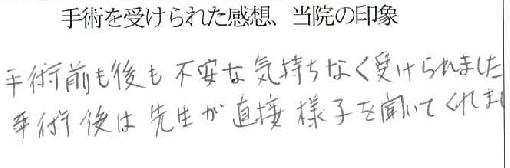 手術を受けられた感想、当院の印象
手術前も後も不安な気持ちなく受けられました
手術後は先生が直接様子を聞いてくれまし